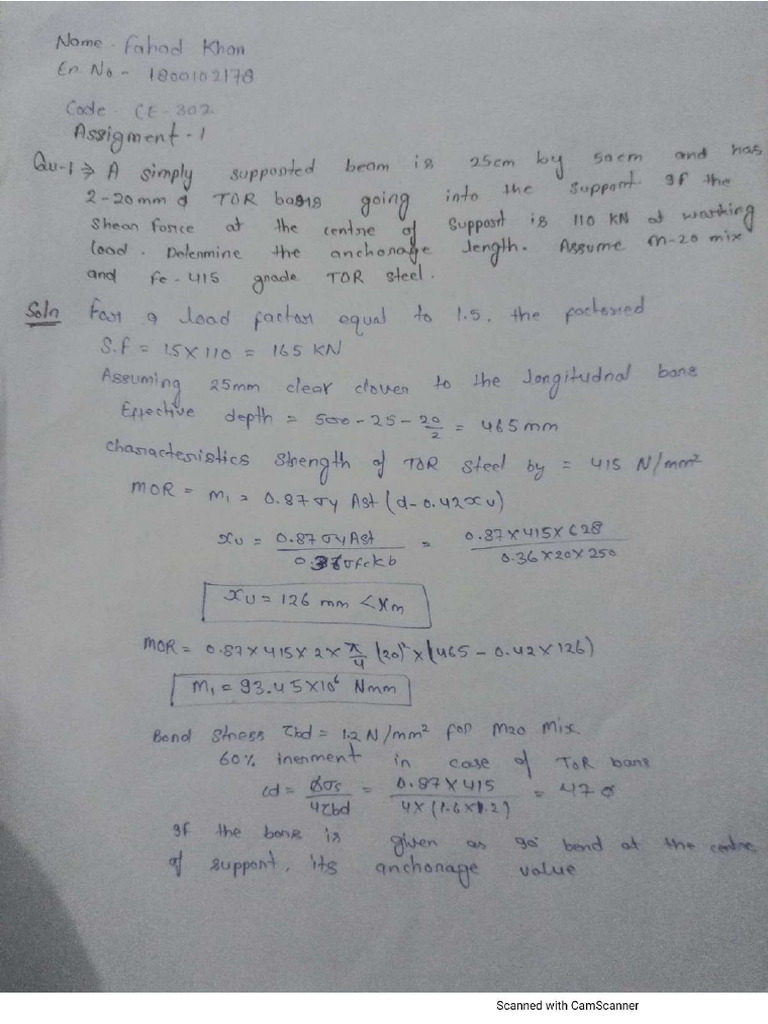 Name - Fahad Khan
En. No - 1800102178
Code - CE-302
Assigment - 1
Qu-1 ⇒ A simply supported beam is 25cm by 50cm and has
2-20mm ϕ TOR bars going into the support. If the
Shear force at the centre of support is 110 KN at warking
load. Determine the anchorage length. Assume M-20 mix
and Fe-415 grade TOR steel.
Soln For a load factor equal to 1.5, the factored
S.f = 1.5 × 110 = 165 KN
Assuming 25mm clear clover to the longitudnal bars
Effective depth = 500 - 25 - 20/2 = 465 mm
characteristics strength of TOR steel by = 415 N/mm²
MOR = M₁ = 0.87 σy Ast (d - 0.42xu)
xu = 0.87 σy Ast / 0.36 σck b = 0.87 × 415 × 628 / 0.36 × 20 × 250
xu = 126 mm < xm
MOR = 0.87 × 415 × 2 × π/4 (20)² × (465 - 0.42 × 126)
M₁ = 93.45 × 10⁶ Nmm
Bond stress τbd = 1.2 N/mm² for M20 Mix
60% inenment in case of TOR bars
Ld = ϕσs / 4τbd = 0.87 × 415 / 4 × (1.6 × 1.2) = 47 ϕ
If the bars is given as 90° bend at the centre
of support, its anchorage value
Scanned with CamScanner